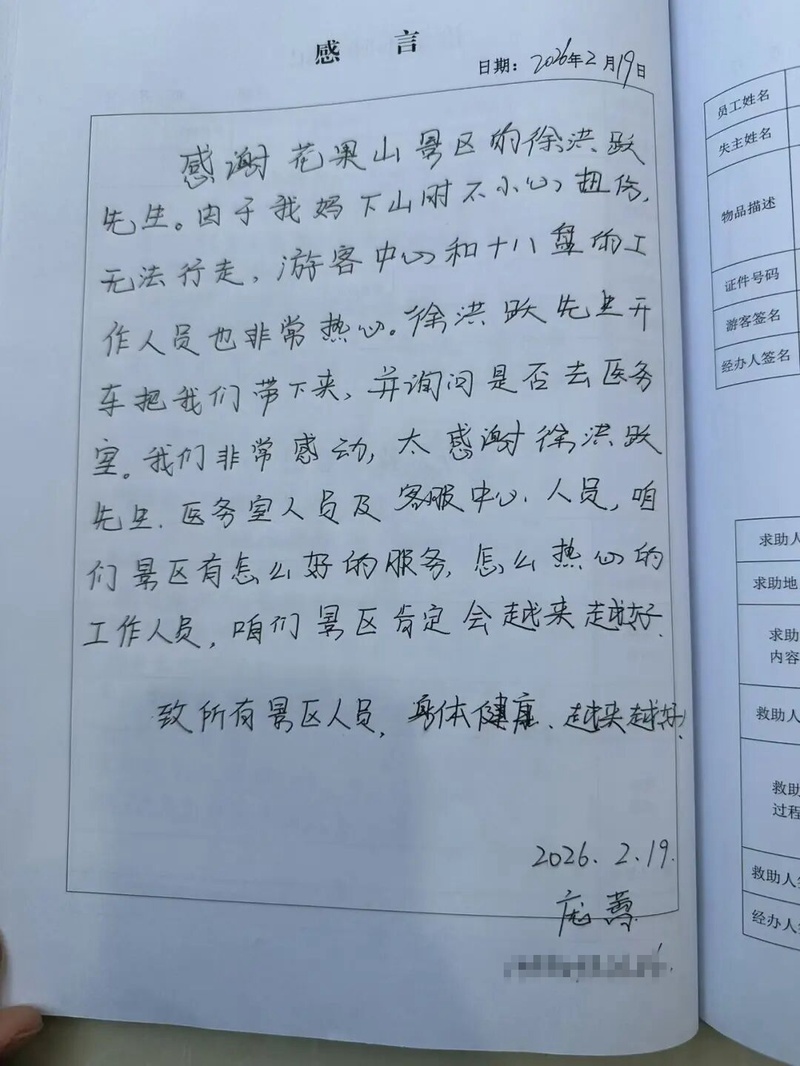 感 言
日期：2026年2月19日
感谢花果山景区的徐洪跃
先生。由于我妈下山时不小心扭伤，
无法行走，游客中心和十八盘的工
作人员也非常热心。徐洪跃先生开
车把我们带下来，并询问是否去医务
室。我们非常感动，太感谢徐洪跃
先生．医务室人员及客服中心．人员，咱
们景区有怎么好的服务，怎么热心的
工作人员，咱们景区肯定会越来越好．
致所有景区人员，身体健康、越来越好！
2026．2．19．
员工姓名
失主姓名
物品描述
证件号码
游客签名
经办人签名
求助人
求助地
求助
内容
救助人
救助
过程
救助人
经办人